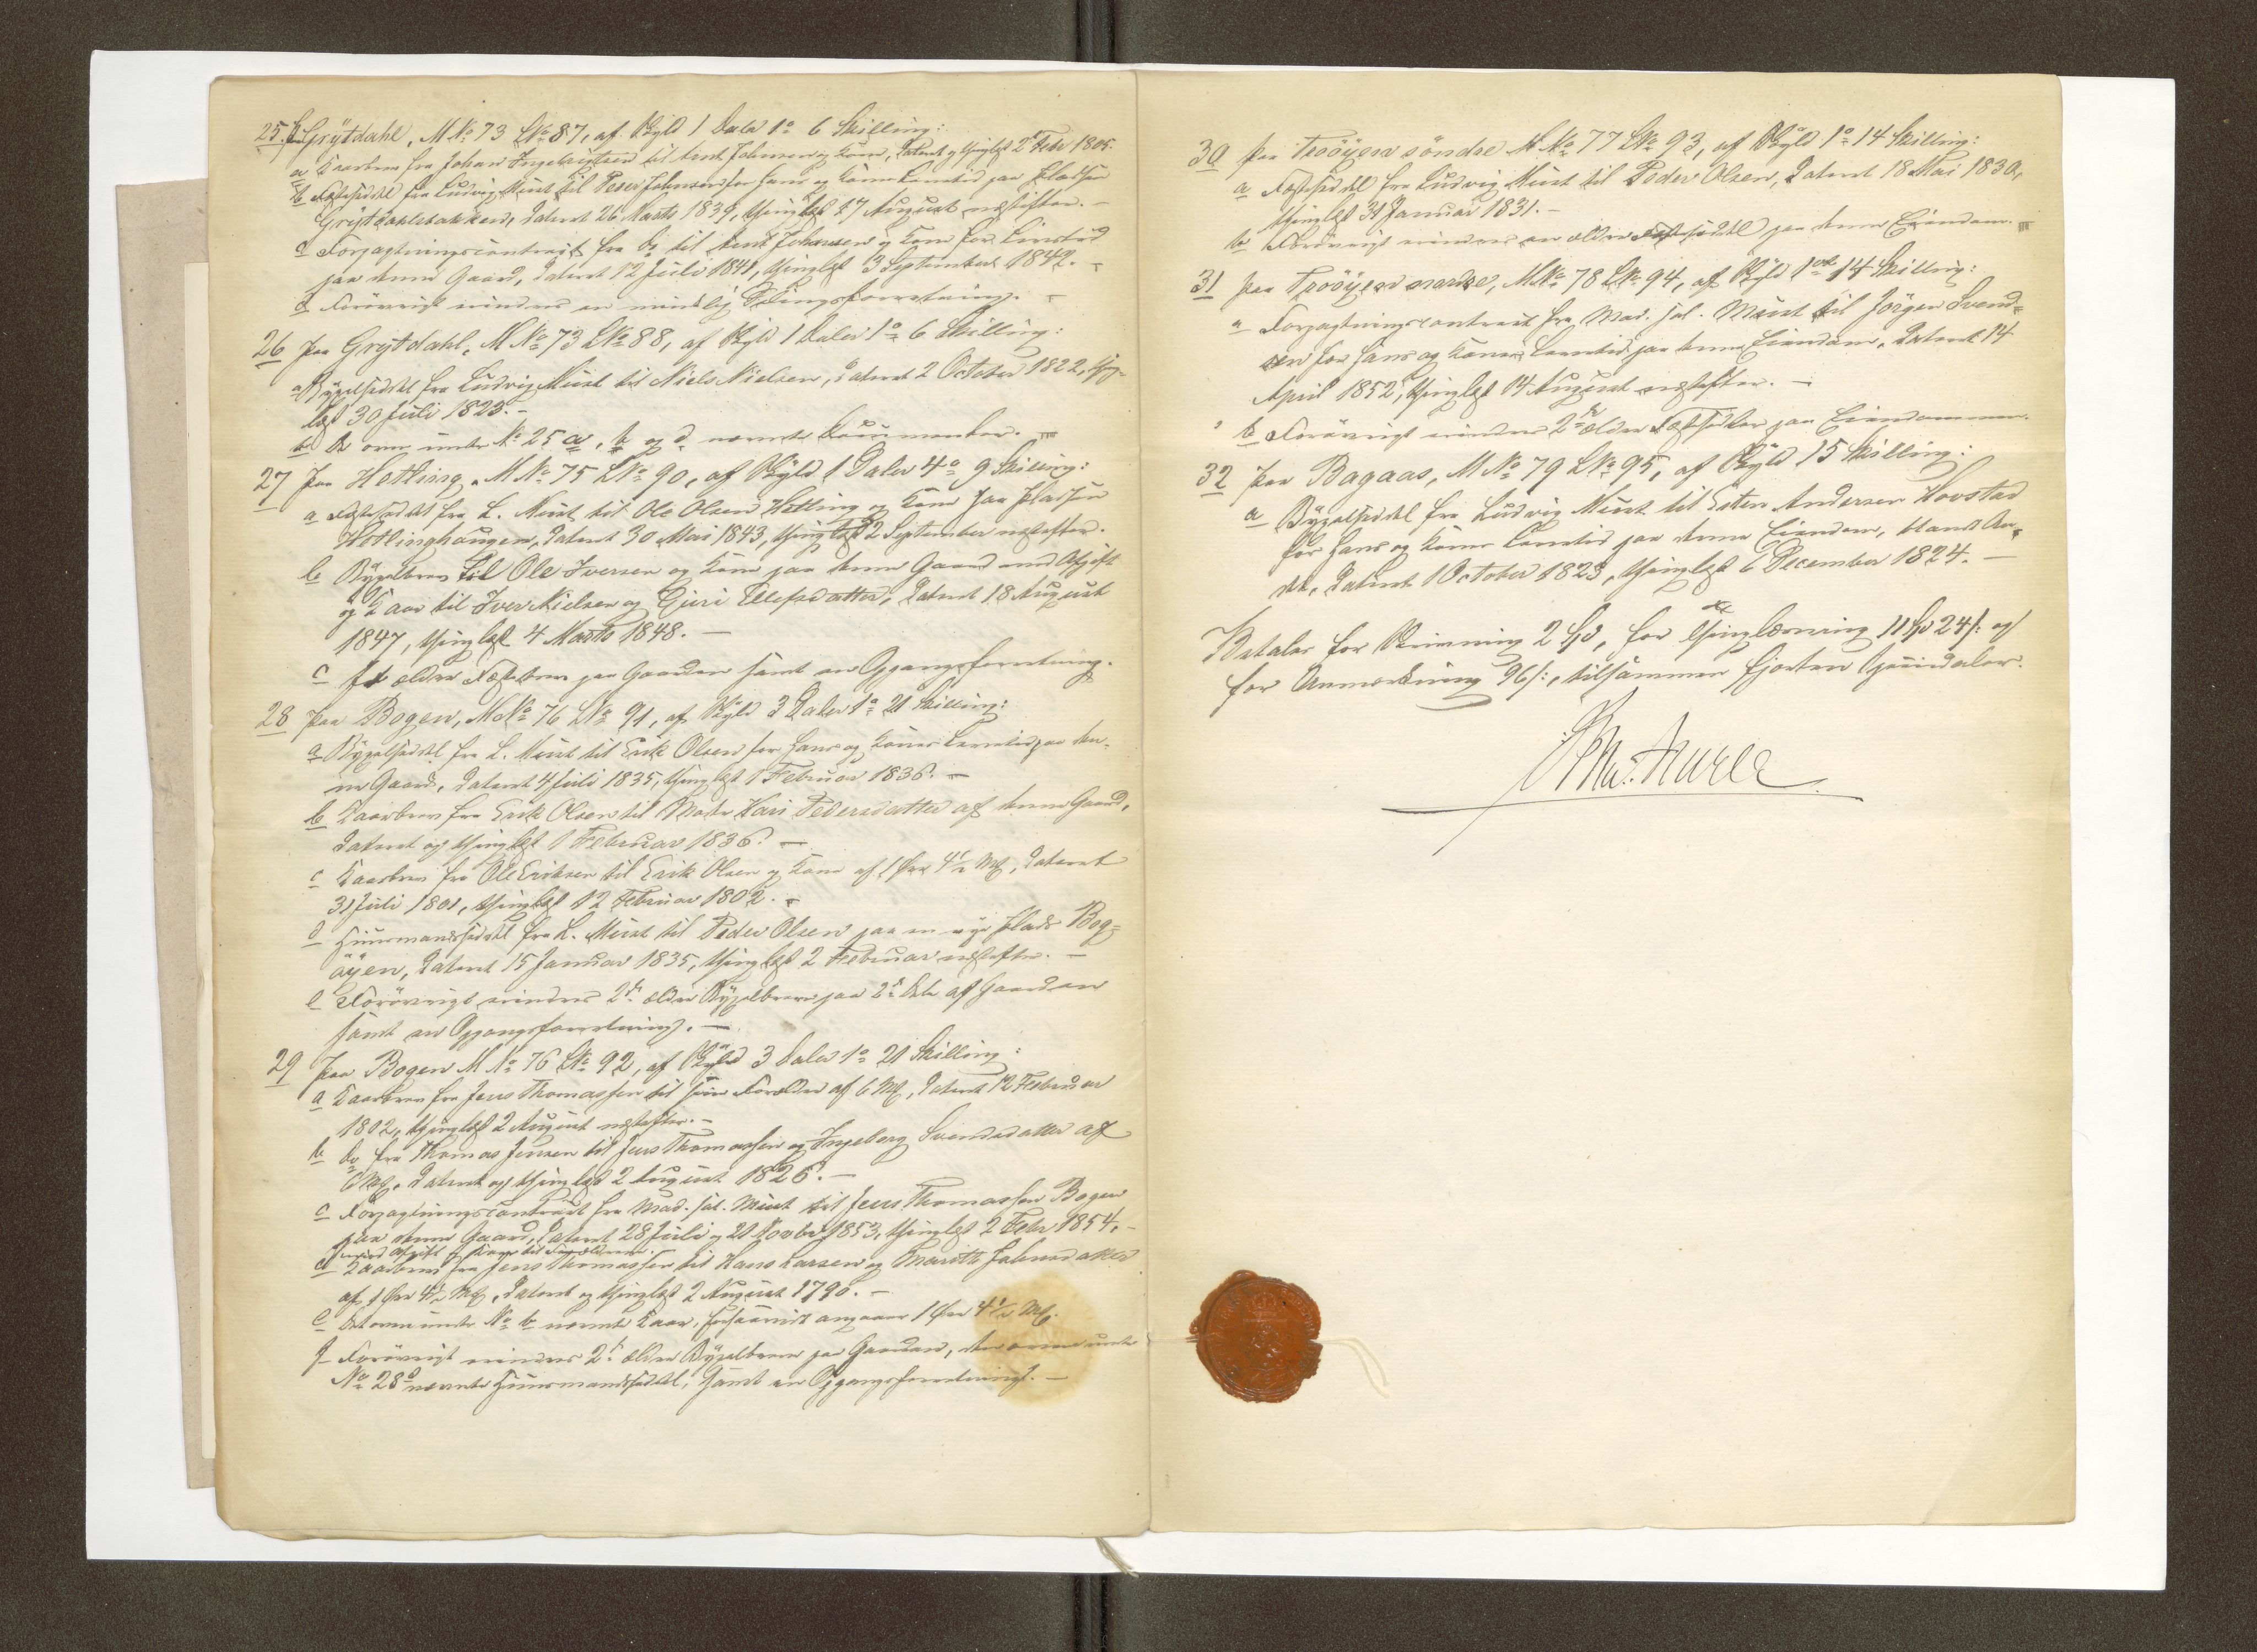 25. Paa Grÿtdahl, M No 73 L No 87, af Skÿld 1 Daler 1 o 6 Skilling:
a Kaarbrev fra Johan Ingebrigtsen til Arnt Johnsen og Kone, dateret og thinglæst 2 Febr 1805.
b Fæstesedel fra Ludvig Must til Peder Johnsen for hans og Kones Levetid paa Pladsen
Grÿtdahlsbakken, dateret 26 Marts 1839, thinglæst 17 August næstefter. –
c Forpagtningscontract fra do til Arnt Johansen og Kone for Livstid
paa denne Gaard, dateret 12 Juli 1841, thinglæst 3 September 1842. –
d Forøvrigt erindres en mindelig Delingsforretning. –
26 Paa Grÿtdahl, M No 73 L No 88, af Skÿld 1 Daler 1 o 6 Skilling:
a Bÿgselseddel fra Ludvig Must til Niels Nielsen, dateret 2 October 1822, thing-
læst 30 Juli 1823. –
b De oven under No 25 a, b og d nævnte Documenter.
27 Paa Hetling, M No 75 L No 90, af Skÿld 1 Daler 4 o 9 Skilling:
a Fæsteseddel fra L. Must til Ole Olsen Hetling og Kone paa Pladsen
Hetlinghaugen, dateret 30 Mai 1843, thinglæst 2 September næstefter.
b Bÿgselbrev til Ole Iversen og Kone paa denne Gaard med Afgift
og Kaar til Iver Nielsen og Guri Ellefsdatter, dateret 18 August
1847, thinglæst 4 Marts 1848. –
c Et ældre Fæstebrev paa Gaarden samt en Opgangsforretning.
28 Paa Bogen, M No 76 L No 91, af Skÿld 3 Daler 1 o 21 Skilling:
a Bÿgselseddel fra L. Must til Erik Olsen for hans og Kones Levetid paa den-
ne Gaard, dateret 4 Juli 1835, thinglæst 1 Februar 1836. –
b Kaarbrev fra Erik Olsen til Moder Kari Pedersdatter af denne Gaard,
dateret og thinglæst 1 Februar 1836. –
c Kaarbrev fra Ole Eriksen til Erik Olsen og Kone af 1 Øre 4½ Mkl, dateret
31 Juli 1801, thinglæst 12 Februar 1802. –
d Huusmandsseddel fra L. Must til Peder Olsen paa en nye Plads Bog-
øÿen, dateret 15 Januar 1835, thinglæst 2 Februar næstefter. –
e Forøvrigt erindres 2de ældre Bÿgselbreve paa 2de Dele af Gaarden
samt en Opgangsforretning. –
29 Paa Bogen M No 76 L No 92, af Skÿld 3 Daler 1 o 21 Skilling:
a Kaarbrev fra Jens Thomassen til sine Forældre af 6 Mkl, dateret 12 Februar
1802, thinglæst 2 August næstefter. –
b do fra Thomas Jensen til Jens Thomassen og Ingeborg Svendsdatter af
6 Mkl, dateret og thinglæst 2 August 1826. –
c Forpagtningscontract fra Mad. sal. Must til Jens Thomassen Bogen
paa denne Gaard, dateret 28 Juli og 21 Novbr 1853, thinglæst 2 Febr 1854, –
med Afgift og Kaar til Forældrene.
d Kaarbrev fra Jens Thomassen til Hans Larsen og Marith Johnsdatter
af 1 Øre 4½ Mkl, dateret og thinglæst 2 August 1796. –
e Det oven under No b nævnte Kaar, forsaavidt angaaer 1 Øre 4½ Mkl.
f Forøvrigt erindres 2de ældre Bÿgselbreve paa Gaarden, den oven under
No 28 d nævnte Huusmandsseddel, samt en Opgangsforretning. –
30 Paa Trøøÿen søndre M No 77 L No 93, af Skÿld 1 o 14 Skilling:
a Fæsteseddel fra Ludvig Must til Peder Olsen, dateret 18 Mai 1830,
thinglæst 31 Januar 1831. –
b Forøvrigt erindres en ældre Fæsteseddel paa denne Eiendom.
31 Paa Trøøÿen nordre, M No 78 L No 94, af Skÿld 1 ort 14 Skilling:
a Forpagtningscontract fra Mad. sal. Must til Jørgen Svend-
sen for hans og Kones Levetid paa denne Eiendom, dateret 14
April 1852, thinglæst 14 August næstefter. –
b Forøvrigt erindres 2de ældre Fæstesedler paa Eiendommen.
32 Paa Bagaas, M No 79 L No 95, af Skÿld 15 Skilling:
a Bÿgselseddel fra Ludvig Must til Esten Andersen Hovstad
for hans og Kones Levetid paa denne Eiendom, blandt An-
det, dateret 1 October 1823, thinglæst 6 December 1824. –
Betaler for Skrivning 2 Spd, for Thinglæsning 11 Spd 24 s: og
for Anmærkning 96 s:, tilsammen fjorten Speciedaler.